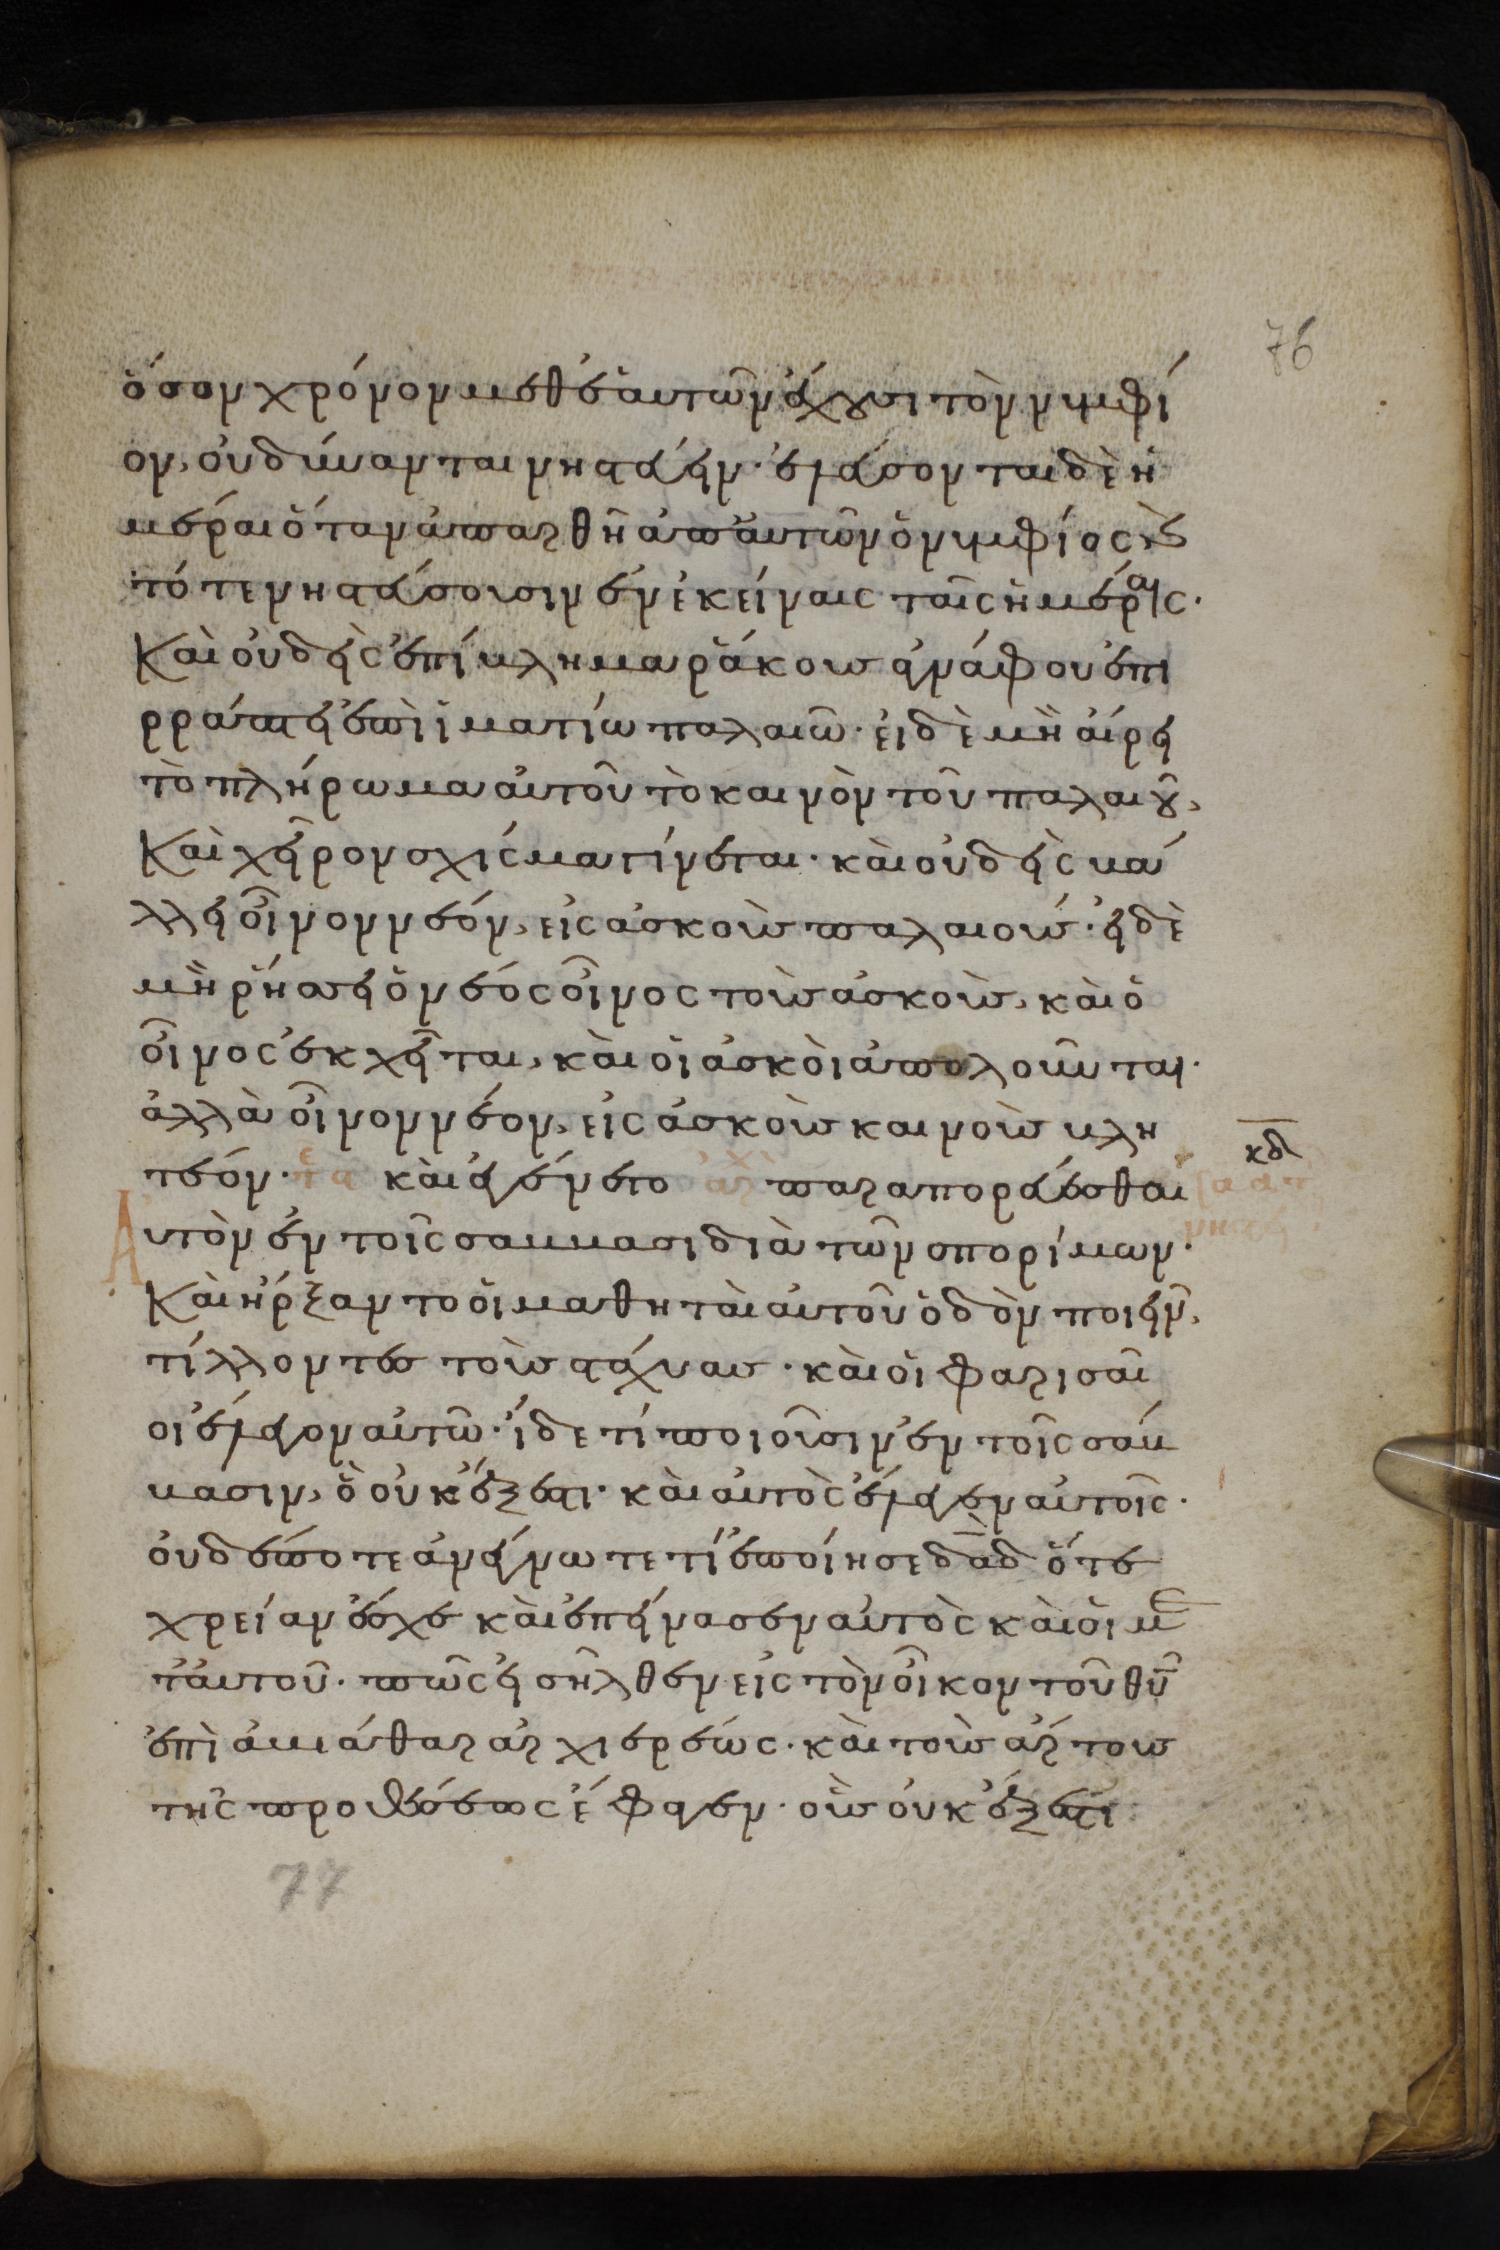 76
ὅσον χρόνον μεθ ἑαυτῶν ἔχουσι τὸν νυμφί
ον, οὐ δύνανται νηστεύειν· ἐλεύσονται δὲ ἡ
μέραι ὅταν ἀπαρθῆ ἀπ αὐτῶν ὁ νυμφίος καὶ
τότε νηστεύσουσιν ἐν ἐκείναις ταῖς ἡμέραις·
Καὶ οὐδεὶς ἐπίβλημα ῥάκους ἀγνάφου ἐπι
ρράπτει ἐπὶ ἱματίω παλαιῶ· εἰ δὲ μὴ αἴρει
τὸ πλήρωμα αὐτοῦ τὸ καινὸν τοῦ παλαιοῦ,
Καὶ χεῖρον σχίσμα γίνεται· καὶ οὐδεὶς βά
λλει οἶνον νεόν, εἰς ἀσκοὺς παλαιούς· εἰ δὲ
μὴ ῥήσσει ὁ νέος οἶνος τοὺς ἀσκοὺς, καὶ ὁ
οἶνος ἐκχεῖται, καὶ οἱ ἀσκοὶ ἀπολοῦνται·
ἀλλὰ οἶνον νέον, εἰς ἀσκοὺς καινοὺς βλη
τέον· καὶ ἐγένετο παραπορεύεσθαι
κδ
Αὐτὸν ἐν τοῖς σάββασι διὰ τῶν σπορίμων·
Καὶ ἤρξαντο οἱ μαθηταὶ αὐτοῦ ὁδὸν ποιεῖν,
τίλλοντες τοὺς στάχυας· καὶ οἱ φαρισαῖ
οι ἔλεγον αὐτῶ· ἴδε τί ποιοῦσιν ἐν τοῖς σάβ
βασιν, ὃ οὐκ ἔξεστι· καὶ αὐτὸς ἔλεγεν αὐτοῖς·
οὐδέποτε ἀνέγνωτε τί ἐποίησε δαδ ὅτε
χρείαν ἔσχε καὶ ἐπείνασεν αὐτὸς καὶ οἱ με
τ αὐτοῦ· πῶς εἰσῆλθεν εἰς τὸν οἶκον τοῦ θυ
ἐπὶ ἀβιάθαρ ἀρχιερέως· καὶ τοὺς ἄρτους
τῆς προθέσεως ἔφαγεν· οὓς οὐκ ἔξεστι
77